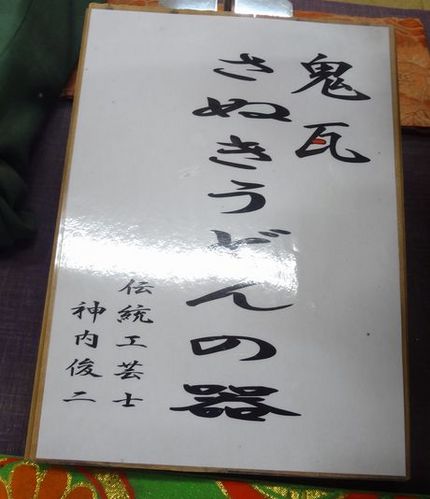 鬼瓦
さぬきうどんの器
伝統工芸士
神内俊二